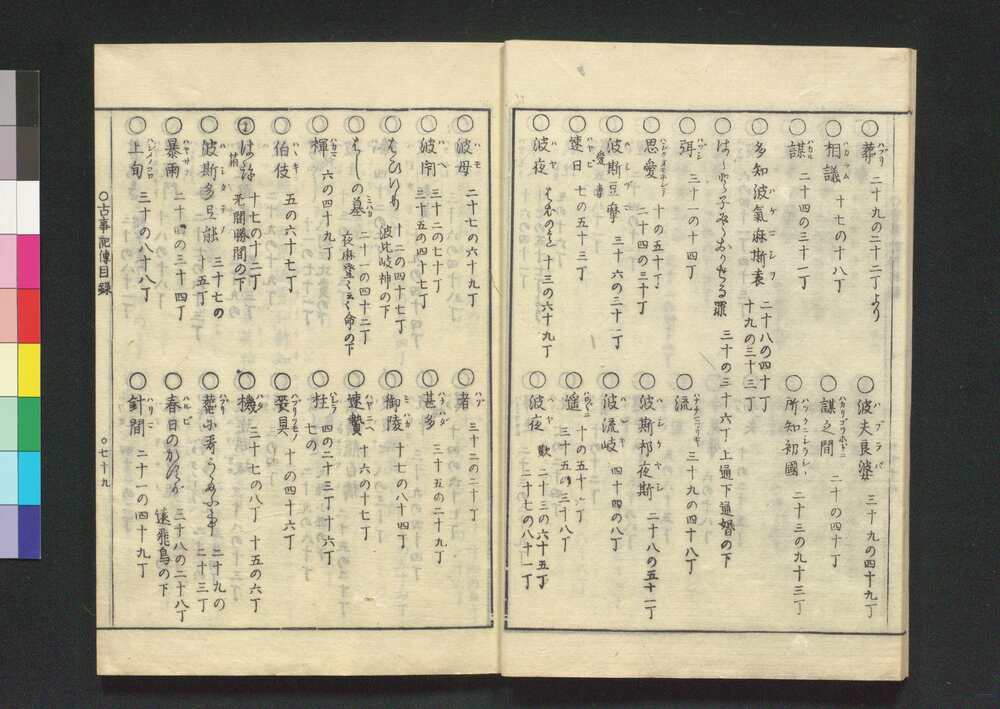 ○葬 二十九の二十二丁より
○波夫良婆 三十九の四十九丁
○相議 十七の十八丁
○謀之間 二十の四十丁
○謀 二十四の三十一丁
○所知初國 二十三の九十三丁
○多知波氣麻斯袁 二十八の四十丁 十九の三十三丁
罪 三十の三十六丁 上通下通婚の下
○弭 三十一の十四丁
○流 三十九の四十八丁
○思愛 十の五十丁 二十四の三十丁
○波斯祁夜斯 二十八の五十一丁
○波斯豆摩 愛妻 三十六の三十二丁
○波流岐 四十四の八丁
○速日 七の五十三丁
○遙 十の五十八丁 三十五の三十八丁
○波夜 十三の六十九丁
○波夜 歎 二十三の六十五丁 二十七の八十一丁
○波母 二十七の六十九丁
○者 三十二の二十丁
○波閇 三十二の七十丁 三十五の四十七丁
○甚多 三十五の二十九丁
十二の四十七丁 波比岐神の下
○御陵 十七の八十四丁
○はしの墓 二十一の四十二丁
○速贄 十六の十七丁
○褌 六の四十九丁
○柱 四の二十三丁 十六丁 七の
○伯伎 五の六十七丁
十の四十六丁
十七の十二丁 无間勝間の下
○機 三十七の八丁 十五の六丁
○波斯多豆能 三十七の二十五丁
二十九の二十三丁
○暴雨 二十四の三十四丁
○春日の 三十八の二十八丁 遠飛鳥の下
○上旬 三十の八十八丁
○針間 二十一の四十九丁
○古事記傳目録
○七十九